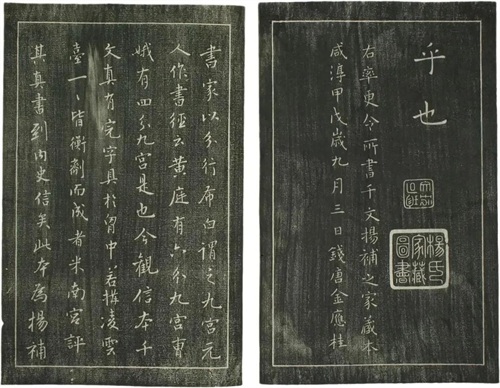 乎也
右率更令所書千文楊補之家藏本
咸淳甲戌歲九月三日錢唐金應桂
楊氏
家藏
圖書
書家以分行布白謂之九宮元
人作書經云黃庭有六分九宮曹
娥有四分九宮是也今觀信本千
文真有完字具於胷中若構凌雲
臺一〻皆衡劑而成者米南宮評
其真書到內史信矣此本為楊補